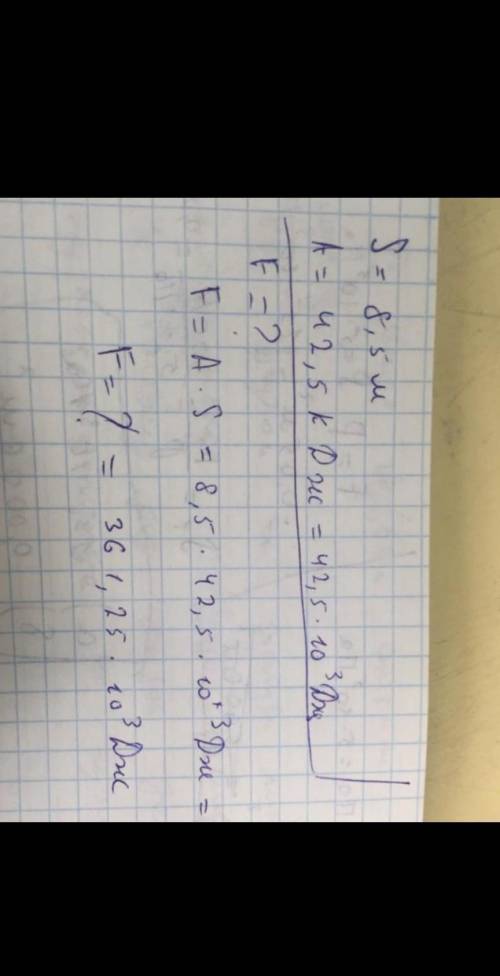 S = 8,5 м
A = 42,5 к Дж = 42,5 · 10³ Дж
F = ?
F = A · S = 8,5 · 42,5 · 10³ Дж =
F = ? = 361,25 · 10³ Дж